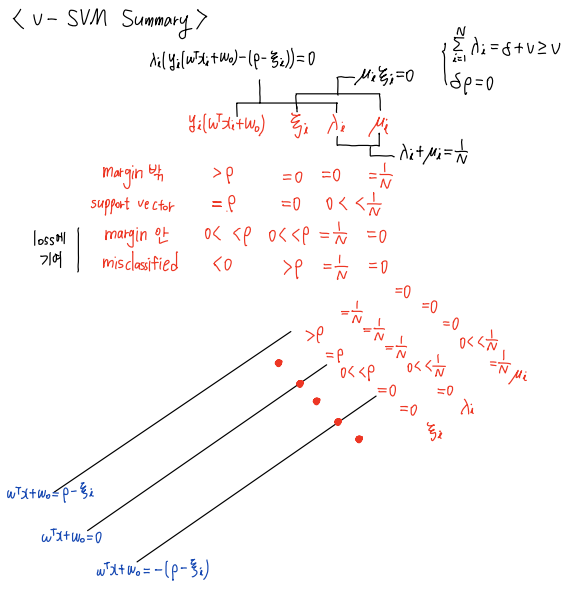 < ν - SVM Summary >
λᵢ(yᵢ(wᵀxᵢ+w₀)-(ρ-ξᵢ))=0
μᵢξᵢ=0
∑ᵢ₌₁ᴺ λᵢ = δ+ν ≥ ν
δρ=0
yᵢ(wᵀxᵢ+w₀) ξᵢ λᵢ μᵢ
λᵢ+μᵢ=1/N
margin 밖 >ρ =0 =0 =1/N
support vector =ρ =0 0< <1/N
loss에 기여
margin 안 0< <ρ 0<<ρ =1/N =0
misclassified <0 >ρ =1/N =0
>ρ =1/N =0
=ρ =1/N =0
0<<ρ =1/N =0
=0 0<<1/N 0<<1/N
=0 =0 =1/N
ξᵢ λᵢ μᵢ
wᵀx+w₀=ρ-ξᵢ
wᵀx+w₀=0
wᵀx+w₀=-(ρ-ξᵢ)